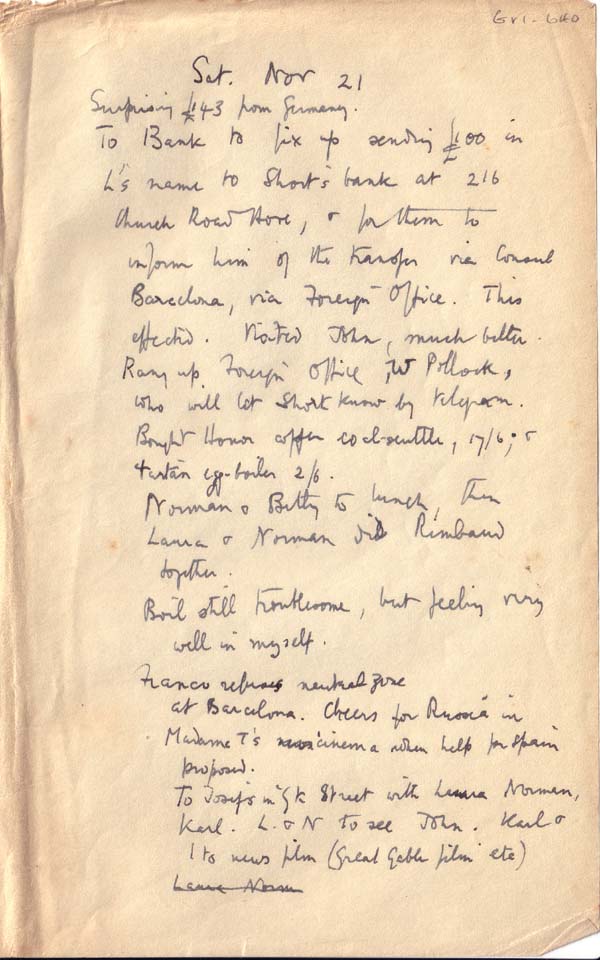 GV1-640
Sat. Nov 21
Surprising £43 from Germany.
To Bank to fix up sending £100 in
L's name to Short's bank at 216
Church Road Hove, & for them to
inform him of the transfer via Consul
Barcelona, via Foreign Office. This
effected. Visited John, much better.
Rang up Foreign Office, W Pollock,
who will let Short know by telegram.
Bought Honor copper coal-scuttle, 17/6; &
tartan egg-boiler 2/6.
Norman & Betty to lunch, then
Laura & Norman did Rimbaud
together.
Boil still troublesome, but feeling very
well in myself.
Franco refuses neutral zone
at Barcelona. Cheers for Russia in
Madame T's cinema when help for Spain
proposed.
To Josef's in Gk Street with Laura Norman,
Karl. L. & N to see John. Karl &
I to news film (Great Gable film etc)
Laura Norman